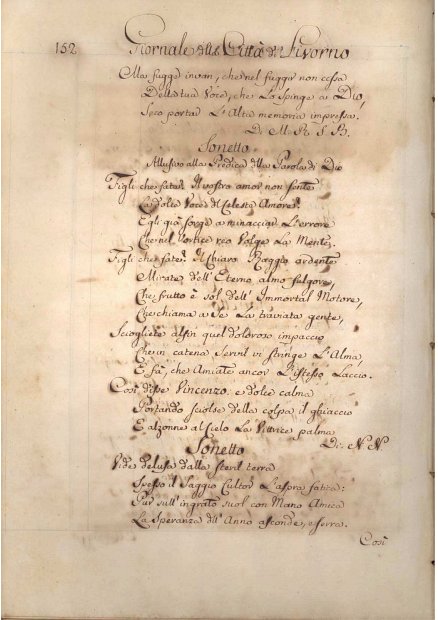 152 Giornale della Città di Livorno
Ma fugge invan, che nel fuggir non cessa
Della tua Voce, che Lo Spinge a Dio,
Seco portar L'Alta memoria impressa.
Di M. R. S. B.
Sonetto
Allusivo alla Predica della Parola di Dio
Figli che fate? Il vostro amor non sente
La dolce Voce del Celeste Amore?
Egli già sorge a minacciar L'errore
Che nel Vortice reo Volge La Mente.
Figli che fate? Il Chiaro Raggio ardente
Mirate dell'Eterno almo fulgore,
Che frutto è sol dell'Immortal Motore,
Che chiama a Se La traviata gente,
Sciogliete alfin quel doloroso impaccio
Che in catena Servil vi stringe L'Alma,
E fà, che Amiate ancor L'istesso Laccio.
Così disse Vincenzo, e dolce calma
Portando sciolse della colpa il ghiaccio
E alzonne al Cielo La Vittrice palma
Di N. N.
Sonetto
Vide delusa dalla steril terra
Spesso il Saggio Cultor L'aspra fatica:
Pur sull'ingrato suol con Mano Amica
La Speranza dell'Anno asconde, e serra.
Così